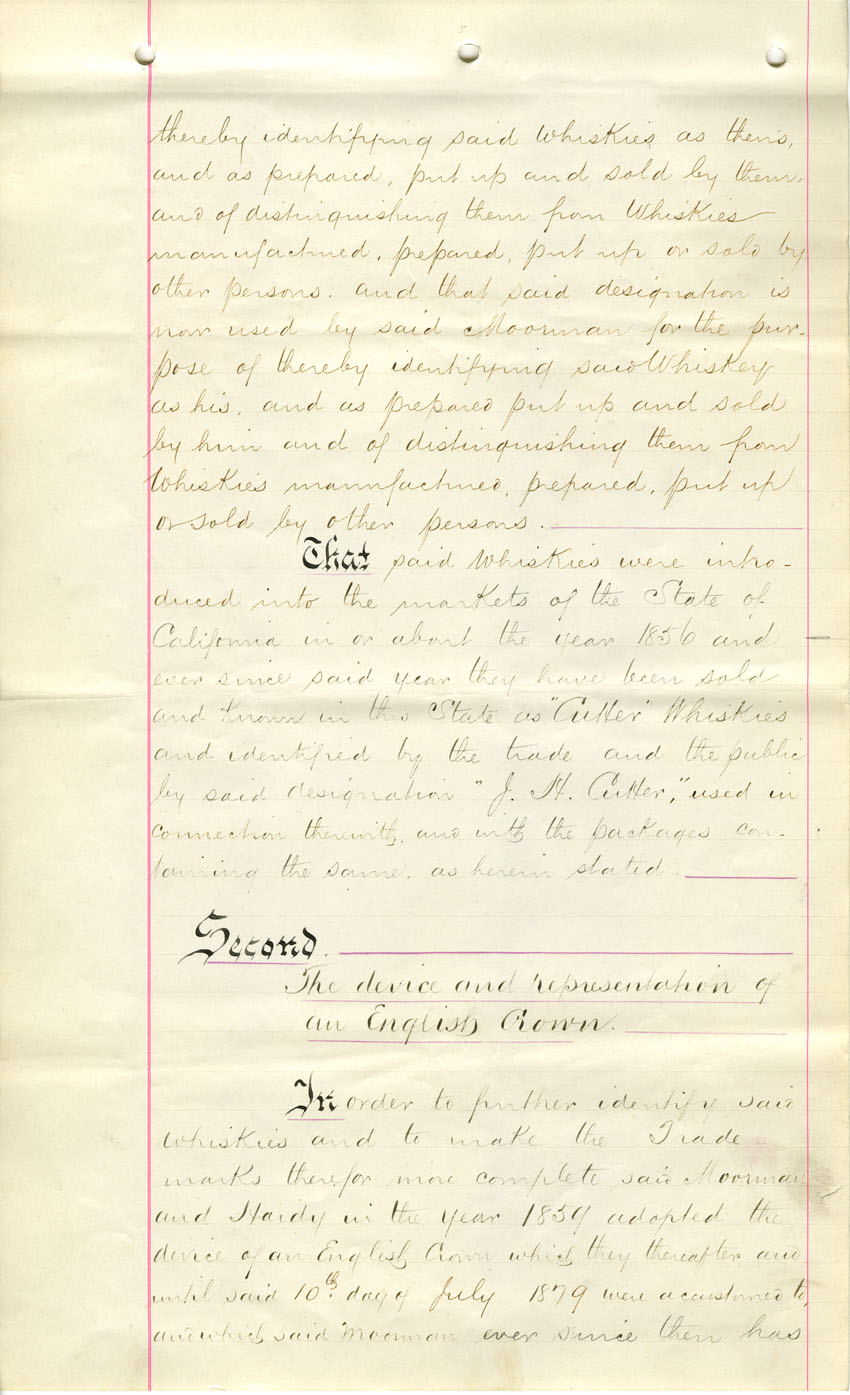 5
thereby identifying said Whiskies as theirs,
and as prepared, put up and sold by them,
and of distinguishing them from Whiskies
manufactured, prepared, put up or sold by
other persons. and that said designation is
now used by said Moorman for the pur-
pose of thereby identifying said Whiskey
as his, and as prepared put up and sold
by him and of distinguishing them from
Whiskies manufactured, prepared, put up
or sold by other persons.
That said Whiskies were intro-
duced into the markets of the State of
California in or about the year 1856 and
ever since said year they have been sold
and known in this State as "Cutter" Whiskies
and identified by the trade and the public
by said designation "J. H. Cutter," used in
connection therewith, and with the packages con-
taining the same, as herein stated.
Second.
The device and representation of
an English Crown.
In order to further identify said
Whiskies and to make the Trade
marks therefor more complete said Moorman
and Hardy in the year 1859 adopted the
device of an English Crown which they thereafter and
until said 10th day of July 1879 were accustomed to,
and which said Moorman ever since then has